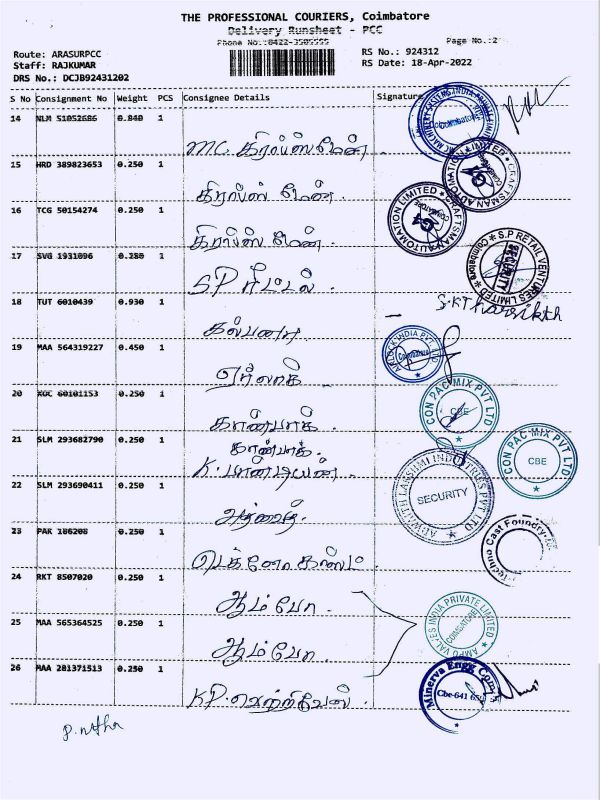 THE PROFESSIONAL COURIERS, Coimbatore
Delivery Runsheet - PCC
Phone No.:0422-3505555 Page No.:2
Route: ARASURPCC RS No.: 924312
Staff: RAJKUMAR RS Date: 18-Apr-2022
DRS No.: DCJB92431202
S No Consignment No Weight PCS Consignee Details Signature
14 NLM 51052686 0.840 1
MC. கிராப்ஸ் மேன்
15 HRD 389823653 0.250 1
கிராப்ஸ் மேன்.
16 TCG 50154274 0.250 1
கிராப்ஸ் மேன்.
17 SVG 1931096 0.280 1
SP ரீட்டல்.
18 TUT 6010439 0.930 1
கல்பனா
19 MAA 564319227 0.450 1
ஏர்லாக்
20 KGC 60101153 0.250 1
கான்பாக்
21 SLM 293682790 0.250 1
கான்பாக்.
K. பாண்டியன்.
22 SLM 293690411 0.250 1
அத்வைத்.
23 PAK 186208 0.250 1
டெக்னோ காஸ்ட்
24 RKT 8507020 0.250 1
ஆம்போ
25 MAA 565364525 0.250 1
ஆம்போ.
26 MAA 281371513 0.250 1
KP. வெற்றிவேல்.
CRAFTSMAN AUTOMATION LIMITED
COIMBATORE
CRAFTSMAN AUTOMATION LIMITED
COIMBATORE
S.P RETAIL VENTURES LIMITED
SECURITY
AIRLOCK INDIA PVT LTD
Coimbatore
CON PAC MIX PVT LTD
CBE
CON PAC MIX PVT LTD
CBE
SECURITY
Techno Cast Foundry
AMPO VALVES INDIA PRIVATE LIMITED
COIMBATORE
Minerva Engg Com